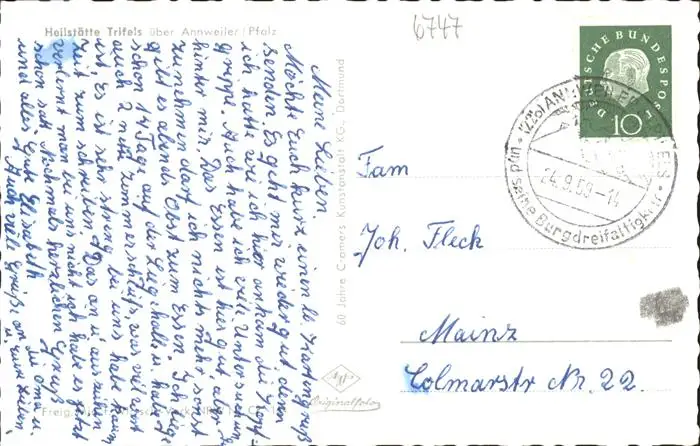 Heilstätte Trifels über Annweiler/Pfalz
6747
Meine Lieben.
Möchte Euch kurz einen lb. Kartengruß
senden Es geht mir wieder gut denn
ich hatte wie ich hier ankam die
grippe. Auch habe ich viel Unter
hinter mir. Das Essen ist hier gut aber
zunehmen darf ich nichts mehr sonst
gibt es abends Obst zum Essen Ich liege
schon 14 Tage auf der Lieg halle u. habe
auch 2 nette Zimmer
ist. Es ist sehr streng bei uns habe kaum
zeit zum schreiben. Das an u ausziehen
verlernt man bei uns nicht ich habe es jetzt
schon satt Nochmals herzlichen Gruß
und alles Gute Elisabeth die Oma u.
Auch viele Grüße an
60 Jahre Cramers Kunstanstalt KG., Dortmund
Agfa
Originalfoto
Freig.
DEUTSCHE BUNDESPOST
10
(22b) ANNWEILER
24.9.59-14
und seine Burgdreifaltigkeit
Fam
Joh. Fleck
Mainz
Colmarstr Nr. 22.